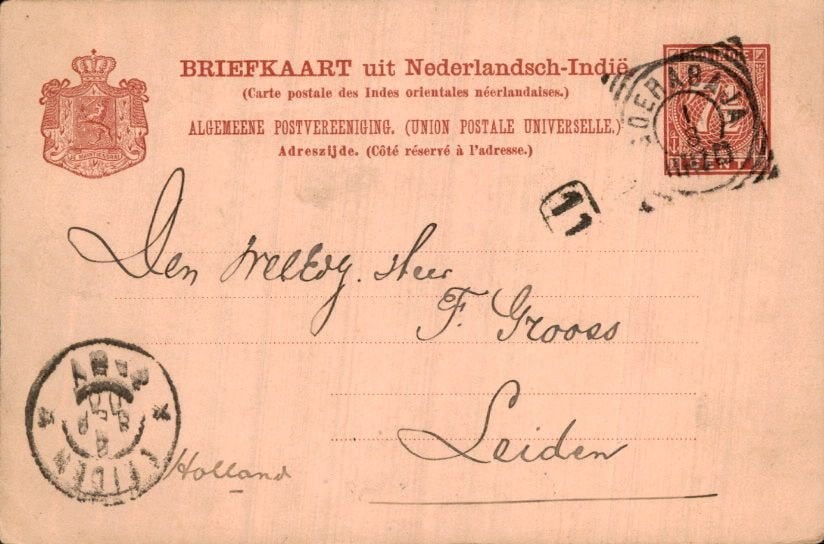 BRIEFKAART uit Nederlandsch-Indië
(Carte postale des Indes orientales néerlandaises.)
ALGEMEENE POSTVEREENIGING. (UNION POSTALE UNIVERSELLE.)
Adreszijde. (Côté réservé à l'adresse.)
SOERABAJA
7½
CENT
11
Den WelEdg. Heer
F. Grooss
Leiden
Holland
LEIDEN